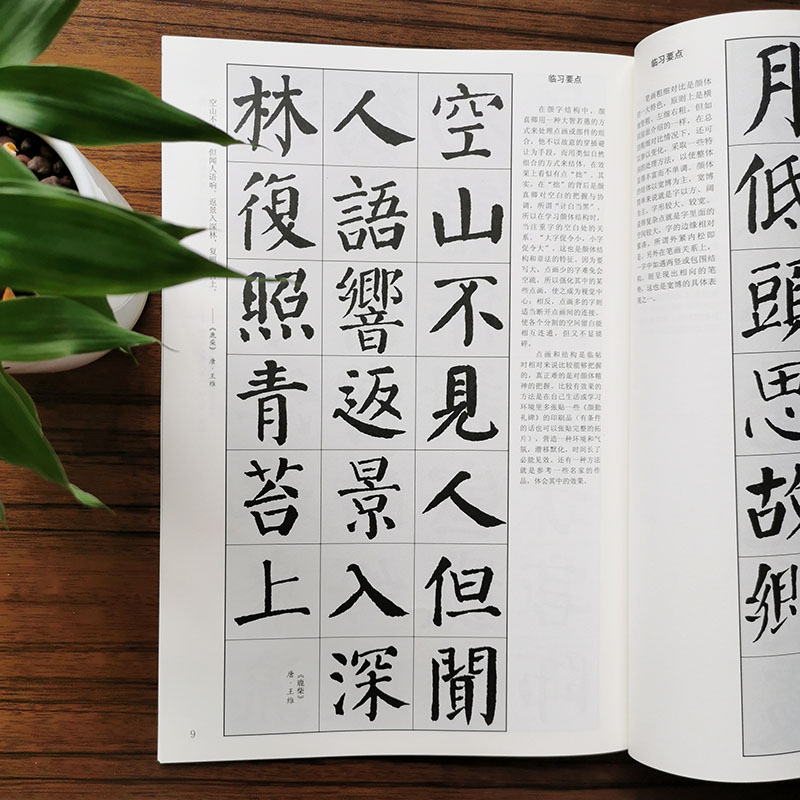 临习要点
在颜字结构中,颜
真卿用一种大智若愚的方
式来处理点画或部件的组
合,他不以故意的穿插避
让为手段,而用类似自然
组合的方式来结体,在效
果上看似有点“拙”。其
实,在“拙”的背后是颜
真卿对空白的把握与协
调,所谓“计白当黑”。
所以在学习颜体结构时,
当注重字的空白处的关
系。“大字促令小,小字
促令大”,这也是颜体结
构和章法的特征。因为要
写大,点画少的字难免会
空疏,所以强化其中的某
些点画,使之成为视觉中
心;相反,点画多的字则
适当断开点画间的连接,
使各个分割的空间留白能
相互连通,但又不显琐
碎。
点画和结构是临帖
时相对来说比较能够把握
的,真正难的是对颜体精
神的把握。比较有效果的
方法是在自己生活或学习
环境里多张贴一些《颜勤
礼碑》的印刷品(有条件
的话也可以张贴完整的拓
片),营造一种环境和气
氛,潜移默化,时间长了
必能见效。还有一种方法
就是参考一些名家的作
品,体会其中的效果。
空山不見人但聞
人語響返景入深
林復照青苔上
《鹿柴》
唐·王维
空山不 但闻人语响。返景入深林,复 上。——《鹿柴》唐·王维
9
临习要点
笔画粗细对比是颜体
的一大特色,原则上是横
细竖粗、左细右粗。但如
前面介绍的一样,在总
的粗细对比情况下,还可
以参以变化,采取一些特
别的处理方法,以使整体
显得丰富而不单调。颜体
的结体以宽博为主,宽博
来说就是字以方、阔
为主,字形较大、较宽。
显得复杂点就是字里面的
空间较大,字的边缘相对
紧凑,所谓外紧内松即
是。另外在笔画关系上,
一字中如遇两竖或包围结
构,则呈现出相向的笔
势,这也是宽博的具体表
现之一。
月低頭思故鄉